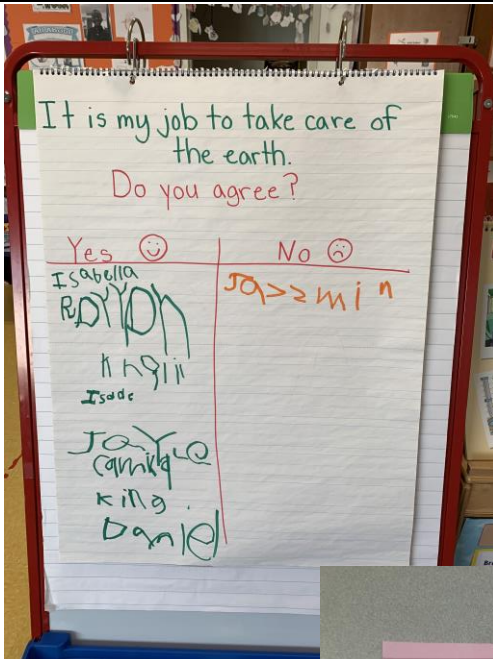 It is my job to take care of
the earth.
Do you agree?
Yes
No
Isabella
Jazzmin
Isade
Jayle
Camila
King
Daniel